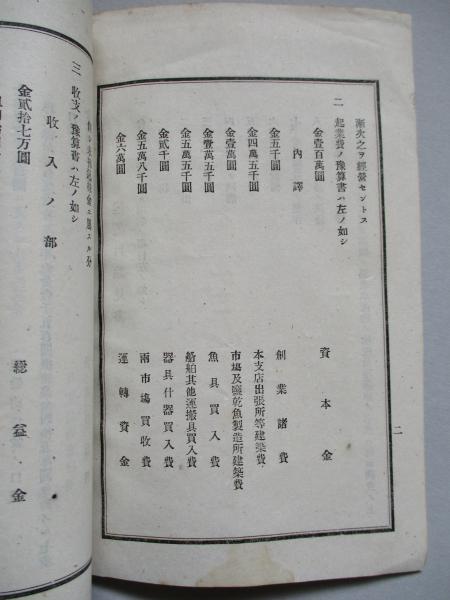 漸次之ヲ經營セントス
二 起業費ノ豫算書ハ左ノ如シ
金壹百萬圓 資本金
內譯
金五千圓 創業諸費
金四萬五千圓 本支店出張所等建築費
金壹萬圓 市場及鹽乾魚製造所建築費
金壹萬五千圓 魚具買入費
金五萬五千圓 船舶其他運搬具買入費
金貳千圓 器具什器買入費
金五萬八千圓 兩市場買收費
金六萬圓 運轉資金
二
三 收支ノ豫算書ハ左ノ如シ
收入ノ部
金貳拾七万圓 總益金